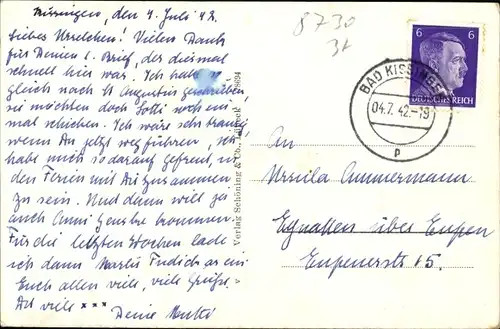 Kissingen, den 4. Juli 42.
Liebes Urselchen! Vielen Dank
für Deinen l. Brief, der diesmal
schnell hier war. Ich habe
gleich nach St Augustin geschrieben,
sie möchten doch Lotti noch ein
mal schicken. Ich wäre sehr traurig
wenn Ihr jetzt wegführen, ich
habe mich so darauf gefreut, in
den Ferien mit Dir zusammen
zu sein. Und dann will ja
auch Anni kommen
Für die letzten Wochen lade
ich dann ein
Euch allen viele, viele Grüße
Dir viele xxx
Deine Mutti
Verlag Schöning & Co., Lübeck
8730
31
6 6
DEUTSCHES REICH
BAD KISSINGEN
04.7.42.-19
p
An
Ursula Ammermann
Eynatten über Eupen
Eupenerstr 5.